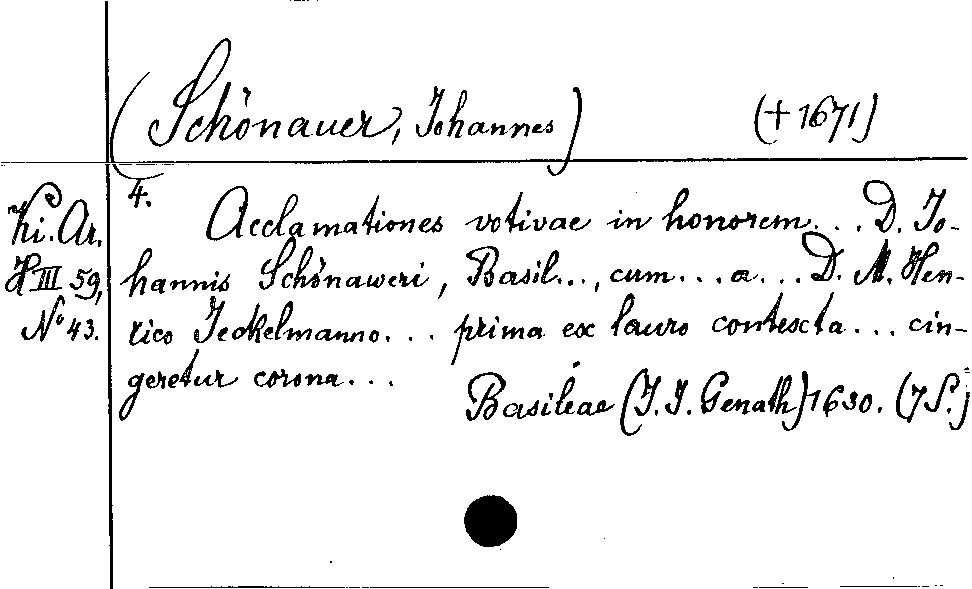 (Schönauer, Johannes) (+ 1671)
4.
Ki. Ar.
H III 59,
No 43.
Acclamationes votivae in honorem... D. Jo-
hannis Schönaweri, Basil..., cum... a... D. M. Hen-
rico Jeckelmanno... prima ex lauro contexta... cin-
geretur corona...
Basileae (J. J. Genath) 1630. (7 S.)